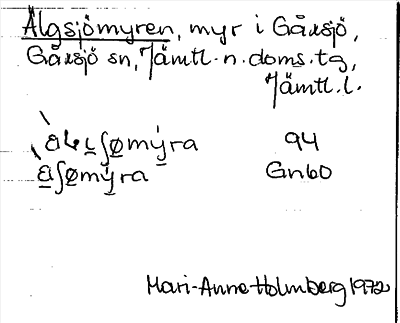 Älgsjömyren, myr i Gåxsjö,
Gåxsjö sn, Jämtl. n. doms. tg,
Jämtl. l.
94
Gnbo
Mari-Anne Holmberg 1972